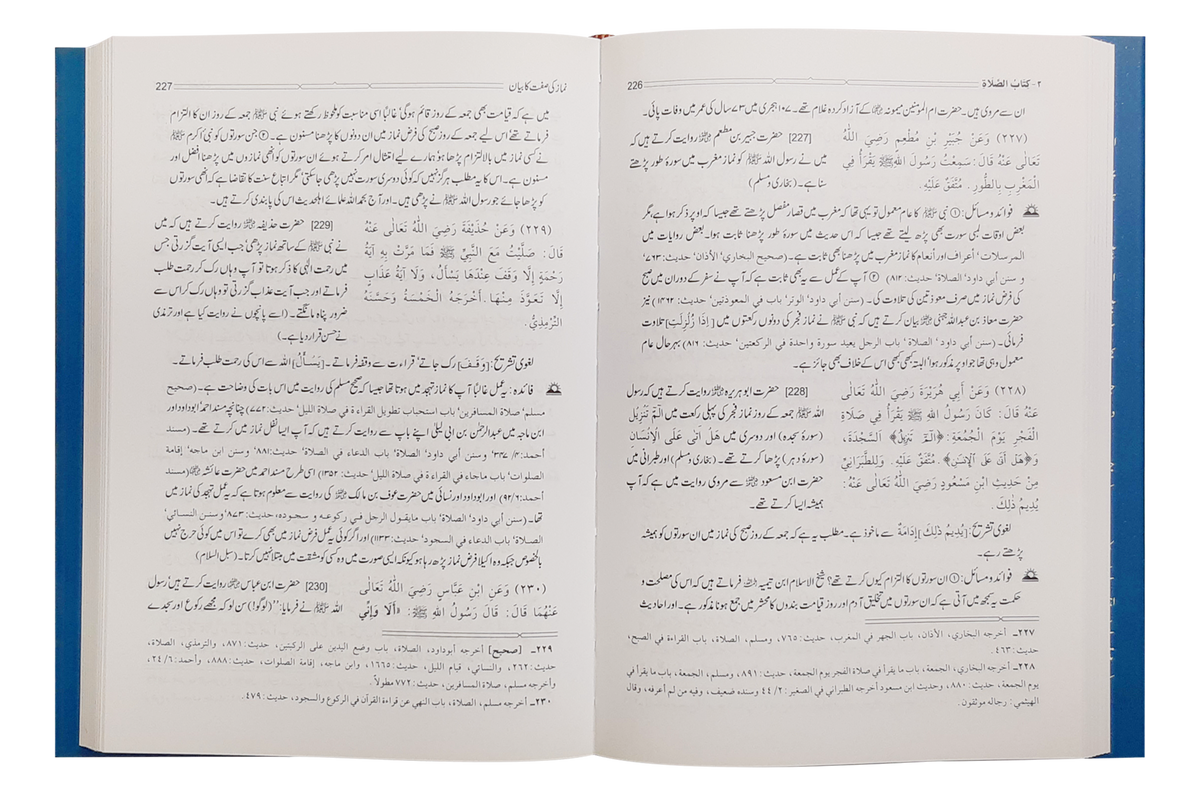 ۲- کتاب الصلاة 226
ان سے مروی ہیں۔ حضرت ام المومنین میمونہ ؓ کے آزاد کردہ غلام تھے۔ ۱۰۷ ہجری میں ۷۳ سال کی عمر میں وفات پائی۔
(٢٢٧) وَعَنْ جُبَيْرِ بْنِ مُطْعِمٍ رَضِيَ اللّٰهُ
تَعَالَى عَنْهُ قَالَ: سَمِعْتُ رَسُولَ اللهِ ﷺ يَقْرَأُ فِي
الْمَغْرِبِ بِالطُّورِ. مُتَّفَقٌ عَلَيْهِ.
[227] حضرت جبیر بن مطعم ؓ روایت کرتے ہیں کہ
میں نے رسول اللہ ﷺ کو نماز مغرب میں سورۂ طور پڑھتے
سنا ہے۔ (بخاری و مسلم)
فوائد و مسائل: ① نبی ﷺ کا عام معمول تو یہی تھا کہ مغرب میں قصار مفصل پڑھتے تھے جیسا کہ اوپر ذکر ہوا ہے مگر
بعض اوقات لمبی سورت بھی پڑھ لیتے تھے جیسا کہ اس حدیث میں سورۂ طور پڑھنا ثابت ہوا۔ بعض روایات میں
المرسلات ' أعراف اور أنعام کا نماز مغرب میں پڑھنا بھی ثابت ہے۔ (صحيح البخاري' الأذان' حديث: ۷۶۳'
و سنن أبي داود' الصلاة' حديث: ۸۱۲) ② آپ کے عمل سے یہ بھی ثابت ہے کہ آپ نے سفر کے دوران میں صبح
کی فرض نماز میں صرف معوذتین کی تلاوت کی۔ (سنن أبي داود' الوتر' باب في المعوذتين' حديث: ۱۴۶۲) نیز
حضرت معاذ بن عبداللہ جہنی بیان کرتے ہیں کہ نبی ﷺ نے نماز فجر کی دونوں رکعتوں میں [إِذَا زُلْزِلَتِ] تلاوت
فرمائی۔ (سنن أبي داود' الصلاة' باب الرجل يعيد سورة واحدة في الركعتين' حديث: ۸۱۶) بہرحال عام
معمول وہی تھا جو اوپر مذکور ہوا' البتہ کبھی کبھی اس کے خلاف بھی جائز ہے۔
(٢٢٨) وَعَنْ أَبِي هُرَيْرَةَ رَضِيَ اللّٰهُ تَعَالَى
عَنْهُ قَالَ: كَانَ رَسُولُ اللهِ ﷺ يَقْرَأُ فِي صَلَاةِ
الْفَجْرِ يَوْمَ الْجُمُعَةِ: ﴿الٓمٓ تَنزِيلُ﴾ السَّجْدَةَ،
وَ﴿هَلْ أَتَىٰ عَلَى ٱلْإِنسَٰنِ﴾. مُتَّفَقٌ عَلَيْهِ. وَلِلطَّبَرَانِيِّ
مِنْ حَدِيثِ ابْنِ مَسْعُودٍ رَضِيَ اللّٰهُ تَعَالَى عَنْهُ:
يُدِيمُ ذَلِكَ.
[228] حضرت ابوہریرہ ؓ روایت کرتے ہیں کہ رسول
اللہ ﷺ جمعہ کے روز نماز فجر کی پہلی رکعت میں الٓمٓ تَنْزِيْلُ
(سورۂ سجدہ) اور دوسری میں هَلْ اَتٰى عَلَى الْاِنْسَانِ
(سورۂ دہر) پڑھا کرتے تھے۔ (بخاری و مسلم) اور طبرانی میں
حضرت ابن مسعود ؓ سے مروی روایت میں ہے کہ آپ
ہمیشہ ایسا کرتے تھے۔
لغوی تشریح: [يُدِيمُ ذٰلِكَ] إِدَامَةٌ سے ماخوذ ہے۔ مطلب یہ ہے کہ جمعہ کے روز صبح کی نماز میں ان سورتوں کو ہمیشہ
پڑھتے رہے۔
فوائد و مسائل: ① ان سورتوں کا التزام کیوں کرتے تھے؟ شیخ الاسلام ابن تیمیہ ؒ فرماتے ہیں کہ اس کی مصلحت و
حکمت یہ سمجھ میں آتی ہے کہ ان سورتوں میں تخلیق آدم اور روز قیامت بندوں کا محشر میں جمع ہونا مذکور ہے۔ اور احادیث
٢٢٧ـ أخرجه البخاري، الأذان، باب الجهر في المغرب، حديث: ٧٦٥، ومسلم، الصلاة، باب القراءة في الصبح،
حديث: ٤٦٣.
٢٢٨ـ أخرجه البخاري، الجمعة، باب ما يقرأ في صلاة الفجر يوم الجمعة، حديث: ٨٩١، ومسلم، الجمعة، باب ما يقرأ في
يوم الجمعة، حديث: ٨٨٠، وحديث ابن مسعود أخرجه الطبراني في الصغير: ٢/ ٤٤ وسنده ضعيف، وفيه من لم أعرفه، وقال
الهيثمي: رجاله موثقون.
نماز کی صفت کا بیان 227
میں ہے کہ قیامت بھی جمعہ کے روز قائم ہوگی' غالباً اسی مناسبت کو ملحوظ رکھتے ہوئے نبی ﷺ جمعہ کے روز ان کا التزام
فرماتے تھے اس لیے جمعہ کے روز صبح کی فرض نماز میں ان دونوں کا پڑھنا مسنون ہے۔ ② جن سورتوں کو نبی اکرم ﷺ
نے کسی نماز میں بالالتزام پڑھا ہو ہمارے لیے امتثال امر کرتے ہوئے ان سورتوں کو انھی نمازوں میں پڑھنا افضل اور
مسنون ہے۔ اس کا یہ مطلب ہرگز نہیں کہ کوئی دوسری سورت نہیں پڑھی جاسکتی' مگر اتباع سنت کا تقاضا ہے کہ انھی سورتوں
کو پڑھا جائے جو رسول اللہ ﷺ نے پڑھی ہیں۔ اور آج بحمد اللہ علمائے اہلحدیث اس کی پابندی کرتے ہیں۔
(٢٢٩) وَعَنْ حُذَيْفَةَ رَضِيَ اللّٰهُ تَعَالَى عَنْهُ
قَالَ: صَلَّيْتُ مَعَ النَّبِيِّ ﷺ فَمَا مَرَّتْ بِهِ آيَةُ
رَحْمَةٍ إِلَّا وَقَفَ عِنْدَهَا يَسْأَلُ، وَلَا آيَةُ عَذَابٍ
إِلَّا تَعَوَّذَ مِنْهَا. أَخْرَجَهُ الْخَمْسَةُ وَحَسَّنَهُ
التِّرْمِذِيُّ.
[229] حضرت حذیفہ ؓ روایت کرتے ہیں کہ میں
نے نبی ﷺ کے ساتھ نماز پڑھی' جب ایسی آیت گزرتی جس
میں رحمت الٰہی کا ذکر ہوتا تو آپ وہاں رک کر رحمت طلب
فرماتے اور جب آیت عذاب گزرتی تو وہاں رک کر اس سے
ضرور پناہ مانگتے۔ (اسے پانچوں نے روایت کیا ہے اور ترمذی
نے حسن قرار دیا ہے۔)
لغوی تشریح: [وَقَفَ] رک جاتے' قراءت سے وقفہ فرماتے۔ [يَسْأَلُ] اللہ سے اس کی رحمت طلب فرماتے۔
فائدہ: یہ عمل غالباً آپ کا نماز تہجد میں ہوتا تھا جیسا کہ صحیح مسلم کی روایت میں اس بات کی وضاحت ہے۔ (صحيح
مسلم' صلاة المسافرين' باب استحباب تطويل القراءة في صلاة الليل' حديث: ۷۷۲) چنانچہ مسند احمد' ابوداود اور
ابن ماجہ میں عبدالرحمٰن بن ابی لیلیٰ اپنے باپ سے روایت کرتے ہیں کہ آپ ایسا نفل نماز میں کرتے تھے۔ (مسند
أحمد: ۴/ ۳۴۷' وسنن أبي داود' الصلاة' باب الدعاء في الصلاة' حديث: ۸۸۱' وسنن ابن ماجه' إقامة
الصلوات' باب ماجاء في القراءة في صلاة الليل' حديث: ۱۳۵۲) اسی طرح مسند احمد میں حضرت عائشہ ؓ (مسند
أحمد: ۶/ ۹۲) اور ابوداود اور نسائی میں حضرت عوف بن مالک ؓ کی روایت سے معلوم ہوتا ہے کہ یہ عمل تہجد کی نماز میں
تھا۔ (سنن أبي داود' الصلاة' باب مايقول الرجل في ركوعه و سجوده' حديث: ۸۷۳' وسنن النسائي'
الصلاة' باب الدعاء في السجود' حديث: ۱۱۳۳) اور اگر کوئی یہ عمل فرض نماز میں بھی کرے تو اس میں کوئی حرج نہیں
بالخصوص جبکہ وہ اکیلا فرض نماز پڑھ رہا ہو کیونکہ ایسی صورت میں وہ کسی کو مشقت میں مبتلا نہیں کرتا۔ (سبل السلام)
(٢٣٠) وَعَنِ ابْنِ عَبَّاسٍ رَضِيَ اللّٰهُ تَعَالَى
عَنْهُمَا قَالَ: قَالَ رَسُولُ اللهِ ﷺ: «أَلَا وَإِنِّي
[230] حضرت ابن عباس ؓ روایت کرتے ہیں' رسول
اللہ ﷺ نے فرمایا: ''(لوگو!) سن لو کہ مجھے رکوع اور سجدے
٢٢٩ـ [صحيح] أخرجه أبوداود، الصلاة، باب وضع اليدين على الركبتين، حديث: ٨٧١، والترمذي، الصلاة،
حديث: ٢٦٢، والنسائي، قيام الليل، حديث: ١٦٦٥، وابن ماجه، إقامة الصلوات، حديث: ٨٨٨، وأحمد: ٦/ ٢٤،
وأخرجه مسلم، صلاة المسافرين، حديث: ٧٧٢ مطولاً.
٢٣٠ـ أخرجه مسلم، الصلاة، باب النهي عن قراءة القرآن في الركوع والسجود، حديث: ٤٧٩.